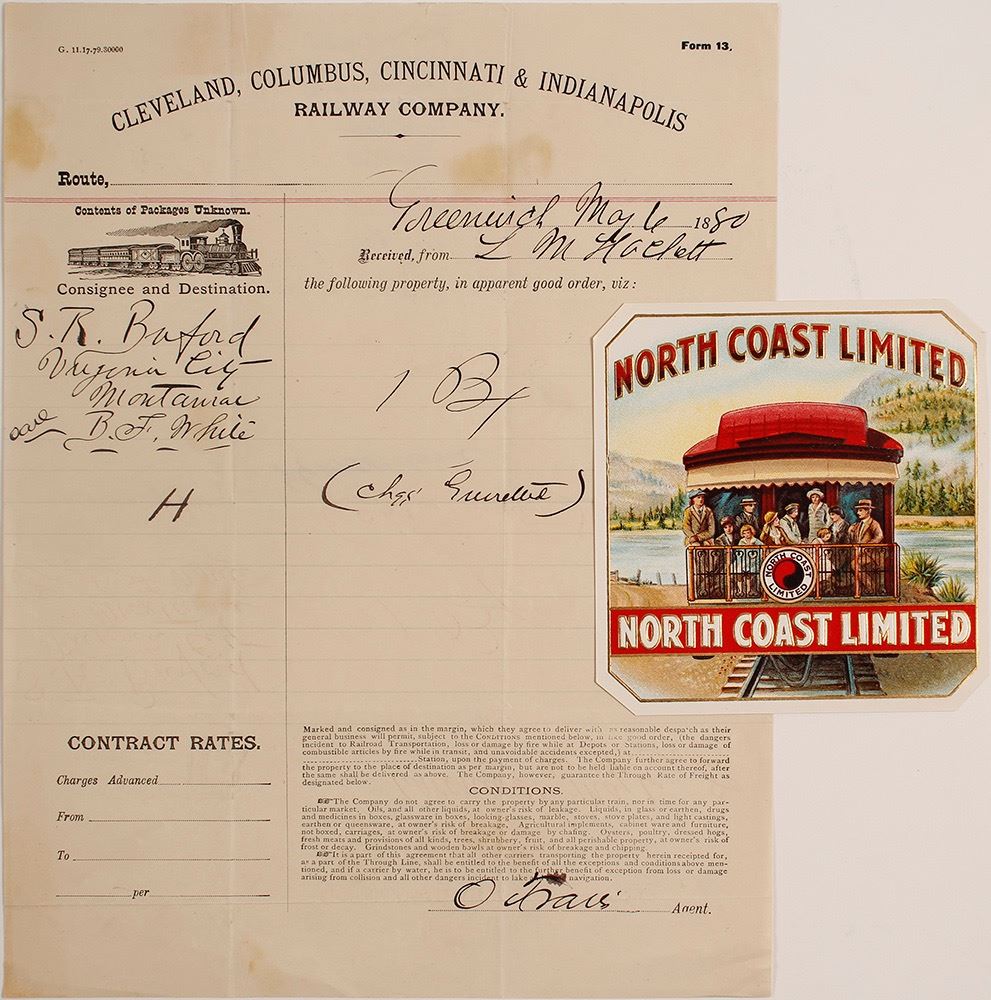 G. 11.17.79.30000
Form 13.
CLEVELAND, COLUMBUS, CINCINNATI & INDIANAPOLIS
RAILWAY COMPANY.
Route,
Greenwich May 6 1880
Contents of Packages Unknown.
Received, from L M Hackett
Consignee and Destination.
the following property, in apparent good order, viz:
S. R. Buford
Virginia City
Montana
care B. F. White
1 Bx
H
(chgs )
NORTH COAST LIMITED
NORTH COAST
LIMITED
NORTH COAST LIMITED
CONTRACT RATES.
Charges Advanced
From
To
per
Marked and consigned as in the margin, which they agree to deliver with as reasonable despatch as their
general business will permit, subject to the CONDITIONS mentioned below, in like good order, (the dangers
incident to Railroad Transportation, loss or damage by fire while at Depots or Stations, loss or damage of
combustible articles by fire while in transit, and unavoidable accidents excepted,) at
Station, upon the payment of charges. The Company further agree to forward
the property to the place of destination as per margin, but are not to be held liable on account thereof, after
the same shall be delivered as above. The Company, however, guarantee the Through Rate of Freight as
designated below.
CONDITIONS.
The Company do not agree to carry the property by any particular train, nor in time for any par-
ticular market. Oils, and all other liquids, at owner's risk of leakage. Liquids, in glass or earthen, drugs
and medicines in boxes, glassware in boxes, looking-glasses, marble, stoves, stove plates, and light castings,
earthen or queensware, at owner's risk of breakage. Agricultural implements, cabinet ware and furniture,
not boxed, carriages, at owner's risk of breakage or damage by chafing. Oysters, poultry, dressed hogs,
fresh meats and provisions of all kinds, trees, shrubbery, fruit, and all perishable property, at owner's risk of
frost or decay. Grindstones and wooden bowls at owner's risk of breakage and chipping.
It is a part of this agreement that all other carriers transporting the property herein receipted for,
as a part of the Through Line, shall be entitled to the benefit of all the exceptions and conditions above men-
tioned, and if a carrier by water, he is to be entitled to the further benefit of exception from loss or damage
arising from collision and all other dangers incident to lake navigation.
O Travis Agent.